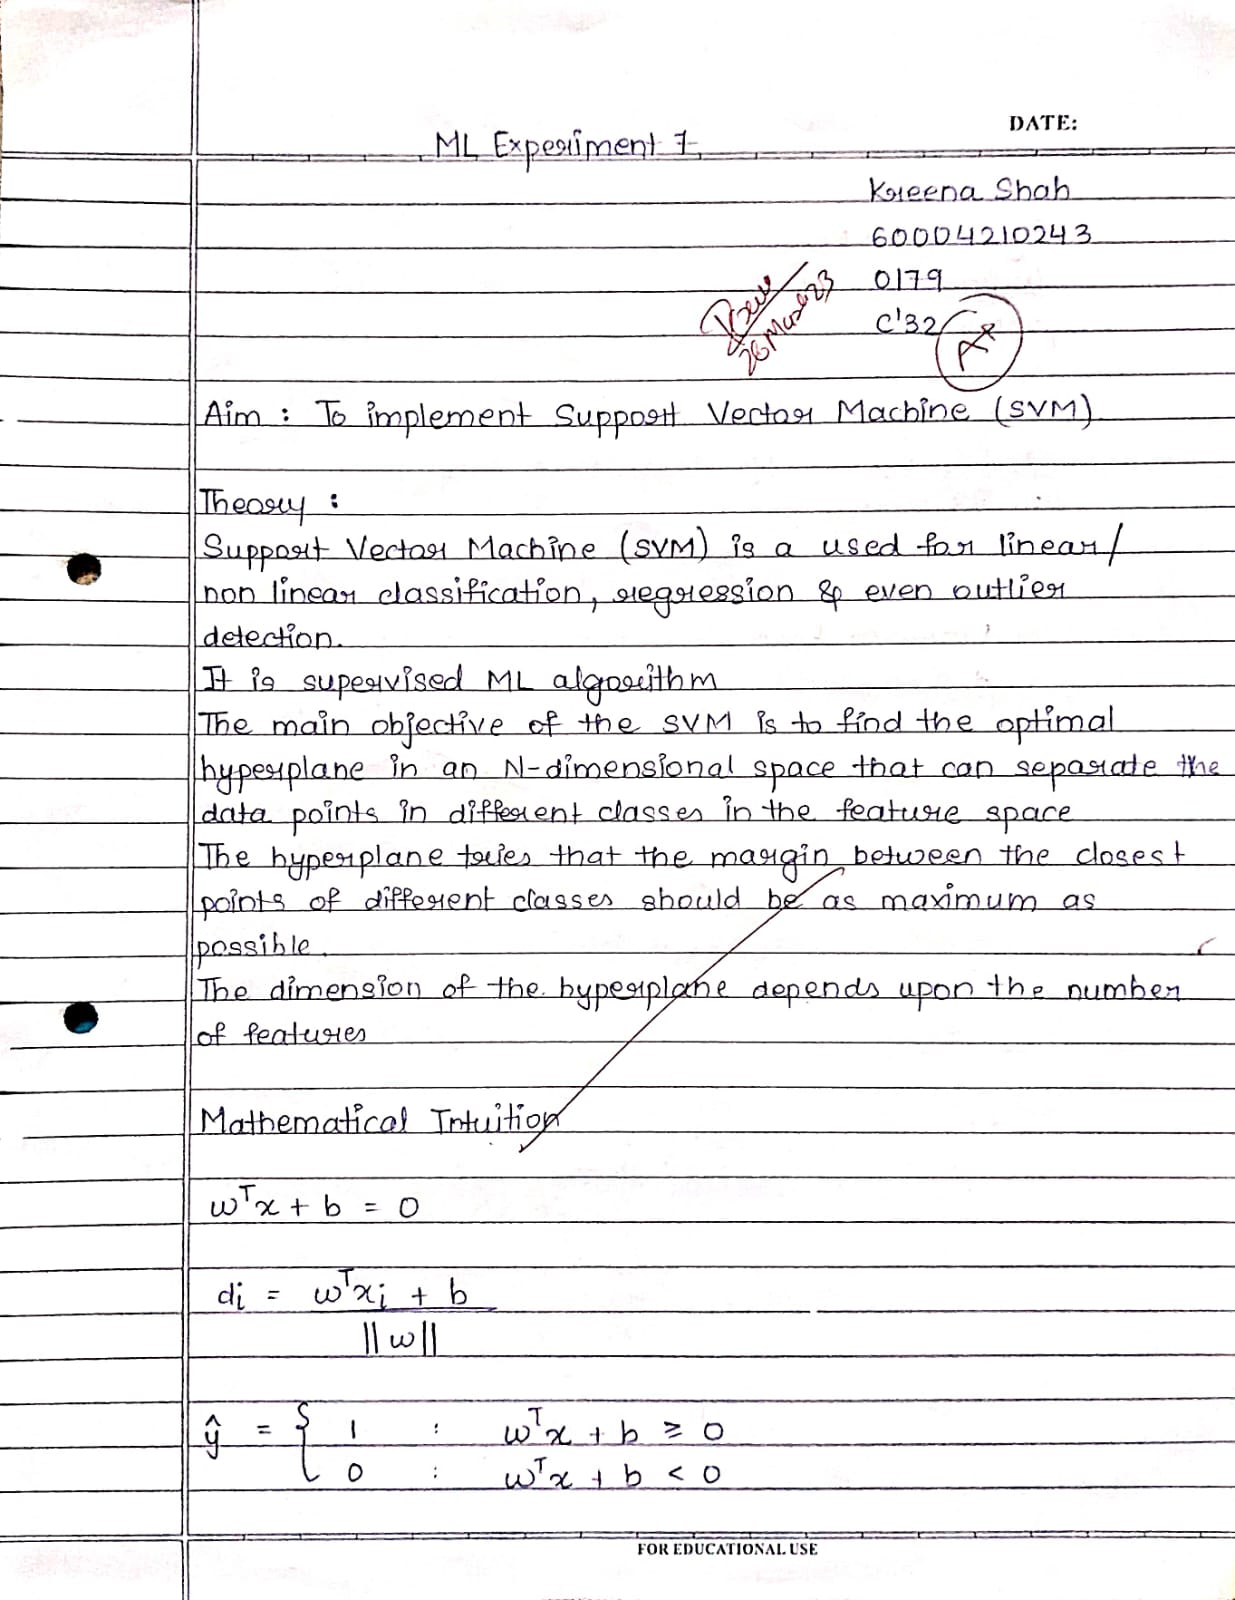 DATE:
ML Experiment 7
Kreena Shah
60004210243
0179
C'32
A+
26 Mar 23
Aim : To implement Support Vector Machine (SVM)
Theory :
Support Vector Machine (SVM) is a used for linear/
non linear classification, regression & even outlier
detection.
It is supervised ML algorithm
The main objective of the SVM is to find the optimal
hyperplane in an N-dimensional space that can separate the
data points in different classes in the feature space
The hyperplane tries that the margin between the closest
points of different classes should be as maximum as
possible.
The dimension of the hyperplane depends upon the number
of features
Mathematical Intuition
wᵀx + b = 0
di = wᵀxi + b
||w||
ŷ = { 1 : wᵀx + b ≥ 0
0 : wᵀx + b < 0
FOR EDUCATIONAL USE